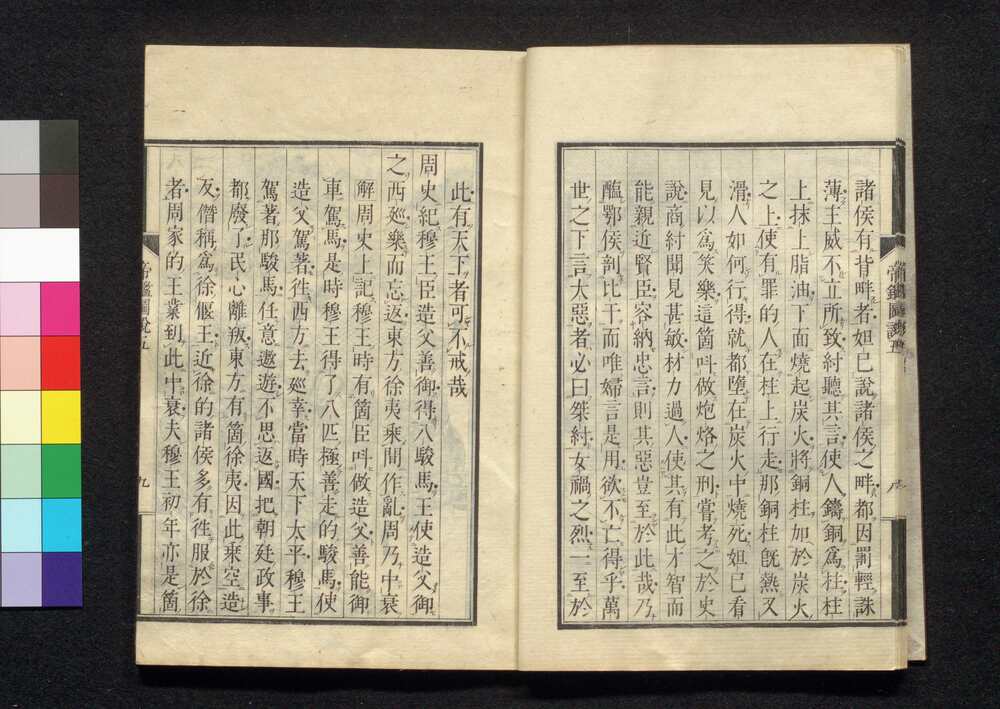 諸侯有背畔者妲巳說諸侯之畔都因罰輕誅
薄王威不立所致紂聽其言使人鑄銅爲柱柱
上抹上脂油下面燒起炭火將銅柱加於炭火
之上使有罪的人在柱上行走那銅柱旣熱又
滑人如何行得就都墮在炭火中燒死妲巳看
見以爲笑樂這箇叫做炮烙之刑嘗考之於史
說商紂聞見甚敏材力過人使其有此才智而
能親近賢臣容納忠言則其惡豈至於此哉乃
醢鄂侯剖比干而唯婦言是用欲不亡得乎萬
世之下言大惡者必曰桀紂女禍之烈一至於
此有天下者可不戒哉
周史紀穆王臣造父善御得八駿馬王使造父御
之西廵樂而忘返東方徐夷乘間作亂周乃中衰
解周史上記穆王時有箇臣叫做造父善能御
車駕馬是時穆王得了八匹極善走的駿馬使
造父駕著徃西方去廵幸當時天下太平穆王
駕著那駿馬任意遨遊不思返國把朝廷政事
都廢了民心離叛東方有箇徐夷因此乘空造
反僭稱爲徐偃王近徐的諸侯多有徃服於徐
者周家的王業到此中衰夫穆王初年亦是箇
帝鑑圖說五
九